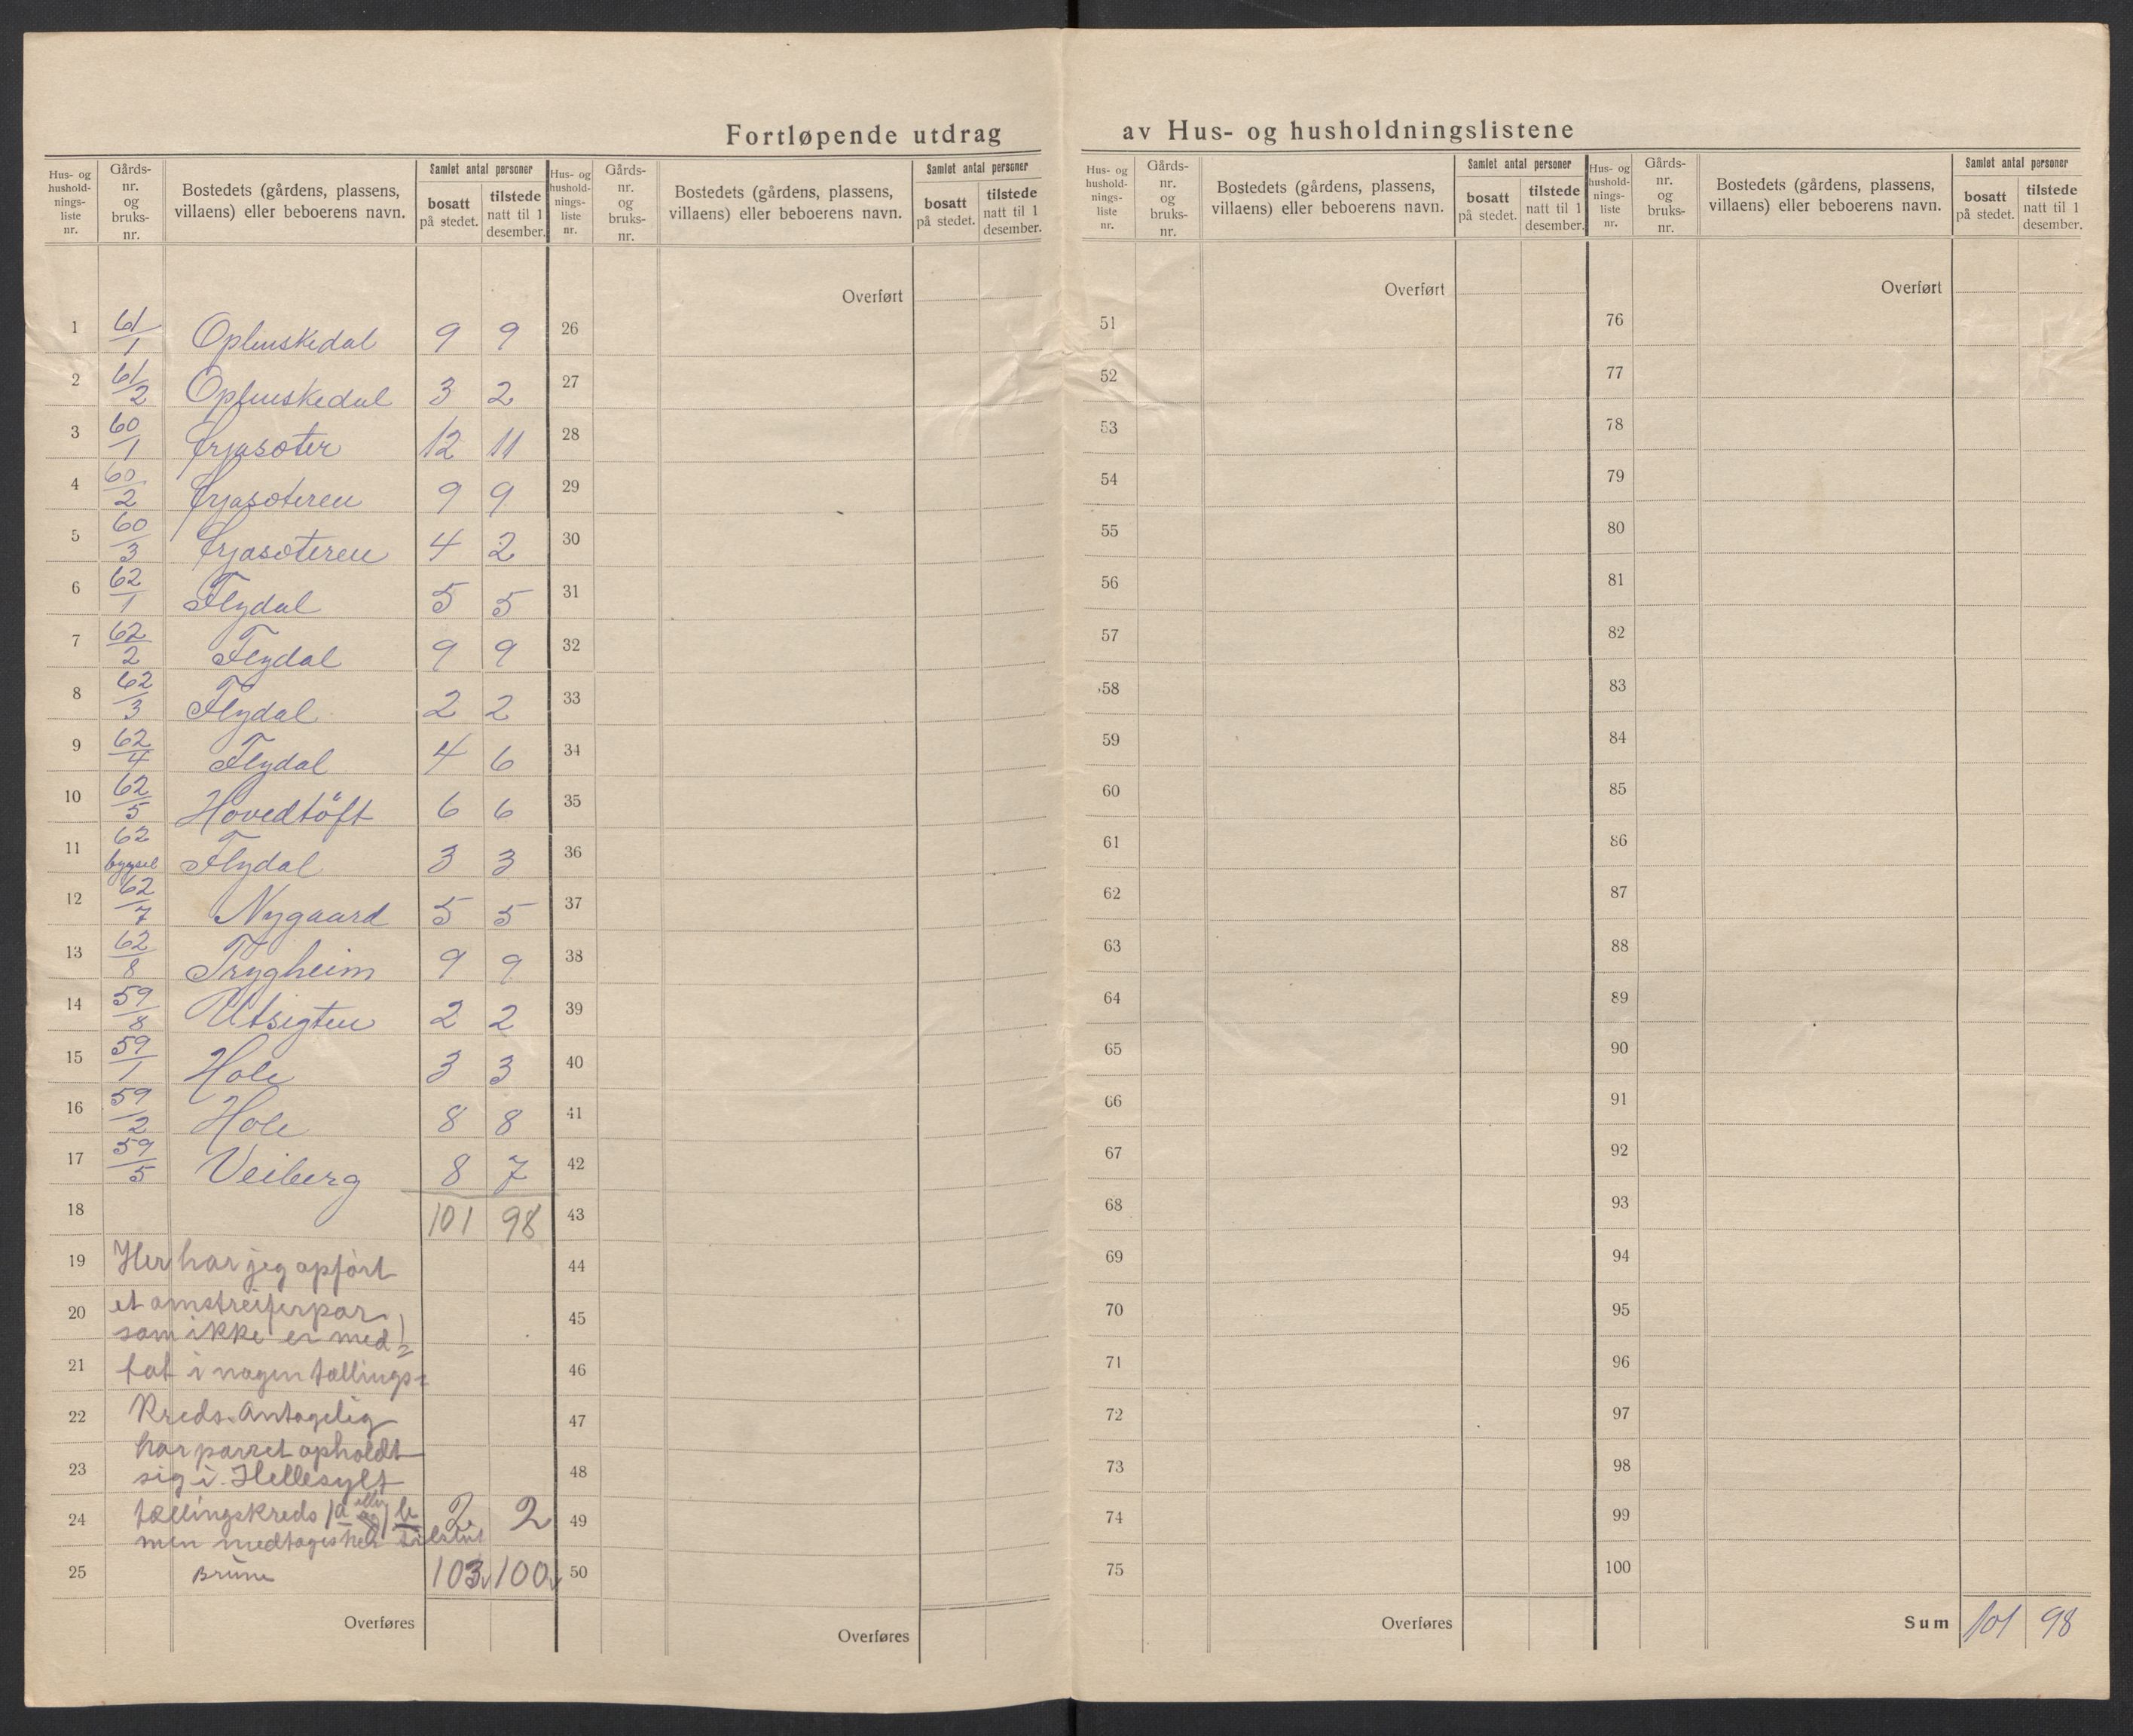 Fortløpende utdrag av Hus- og husholdningslistene
Hus- og hushold-nings-liste nr. Gårds-nr. og bruks-nr. Bostedets (gårdens, plassens, villaens) eller beboerens navn. Samlet antal personer bosatt på stedet. tilstede natt til 1 desember.
Hus- og hushold-nings-liste nr. Gårds-nr. og bruks-nr. Bostedets (gårdens, plassens, villaens) eller beboerens navn. Samlet antal personer bosatt på stedet. tilstede natt til 1 desember.
Hus- og hushold-nings-liste nr. Gårds-nr. og bruks-nr. Bostedets (gårdens, plassens, villaens) eller beboerens navn. Samlet antal personer bosatt på stedet. tilstede natt til 1 desember.
Hus- og hushold-nings-liste nr. Gårds-nr. og bruks-nr. Bostedets (gårdens, plassens, villaens) eller beboerens navn. Samlet antal personer bosatt på stedet. tilstede natt til 1 desember.
1 61/1 Oplenskedal 9 9
2 61/2 Oplenskedal 3 2
3 60/1 Örjasæter 12 11
4 60/2 Örjasæteren 9 9
5 60/3 Örjasæteren 4 2
6 62/1 Flydal 5 5
7 62/2 Flydal 9 9
8 62/3 Flydal 2 2
9 62/4 Flydal 4 6
10 62/5 Hovedtöft 6 6
11 62 bygsel Flydal 3 3
12 62/7 Nygaard 5 5
13 62/8 Trygheim 9 9
14 59/8 Utsigten 2 2
15 59/1 Hole 3 3
16 59/2 Hole 8 8
17 59/5 Veiberg 8 7
18 101 98
19 Her har jeg opført
20 et omstreiferpar
som ikke er med
21 tat i nogen tællings=
22 Kreds. Antagelig
har parret opholdt
23 sig i Hellesylt
24 tællingskreds (a eller b) 2 2
men medtages her tilslut
25 Brune 103 100
Overføres
Overført
26
27
28
29
30
31
32
33
34
35
36
37
38
39
40
41
42
43
44
45
46
47
48
49
50
Overføres
Overført
51
52
53
54
55
56
57
58
59
60
61
62
63
64
65
66
67
68
69
70
71
72
73
74
75
Overføres
Overført
76
77
78
79
80
81
82
83
84
85
86
87
88
89
90
91
92
93
94
95
96
97
98
99
100
Sum 101 98